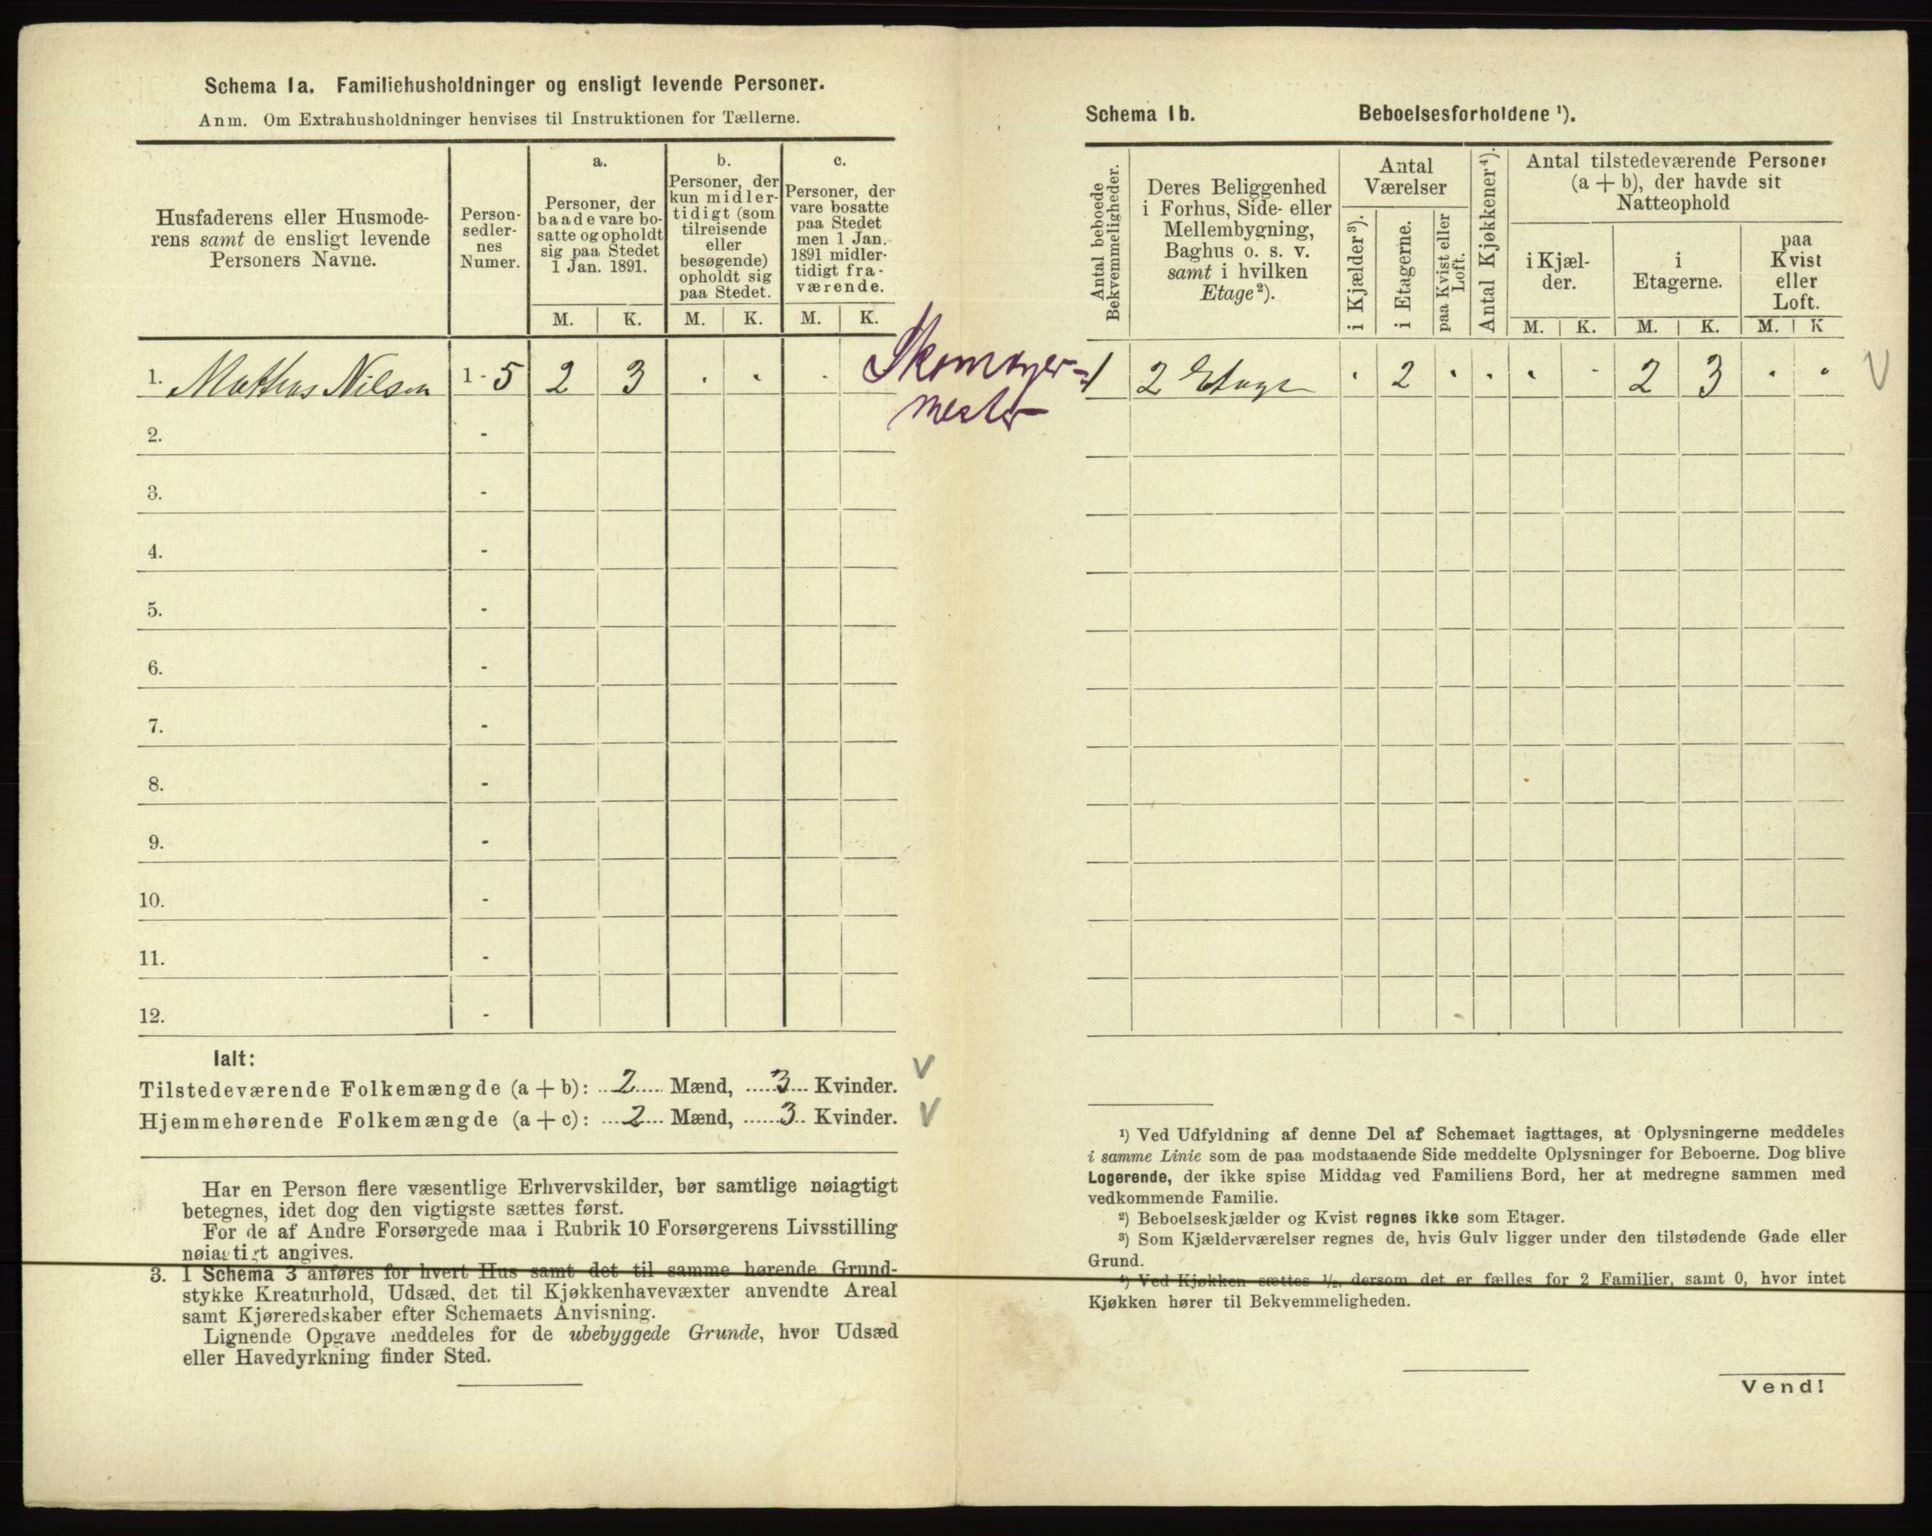 Schema 1a. Familiehusholdninger og ensligt levende Personer.
Anm. Om Extrahusholdninger henvises til Instruktionen for Tællerne.
Husfaderens eller Husmode-
rens samt de ensligt levende
Personers Navne.
Person-
sedler-
nes
Numer.
a.
Personer, der
baade vare bo-
satte og opholdt
sig paa Stedet
1 Jan. 1891.
M. K.
b.
Personer, der
kun midler-
tidigt (som
tilreisende
eller
besøgende)
opholdt sig
paa Stedet.
M. K.
c.
Personer, der
vare bosatte
paa Stedet
men 1 Jan.
1891 midler-
tidigt fra-
værende.
M. K.
1. Mathias Nilsen 1 - 5 2 3 . . .
Skomager=
mester
2. -
3. -
4. -
5. -
6. -
7. -
8. -
9. -
10. -
11. -
12. -
Ialt:
Tilstedeværende Folkemængde (a + b): 2 Mænd, 3 Kvinder. V
Hjemmehørende Folkemængde (a + c): 2 Mænd, 3 Kvinder. V
Har en Person flere væsentlige Erhvervskilder, bør samtlige nøiagtigt
betegnes, idet dog den vigtigste sættes først.
For de af Andre Forsørgede maa i Rubrik 10 Forsørgerens Livsstilling
nøiagtigt angives.
3. I Schema 3 anføres for hvert Hus samt det til samme hørende Grund-
stykke Kreaturhold, Udsæd, det til Kjøkkenhavevæxter anvendte Areal
samt Kjøreredskaber efter Schemaets Anvisning.
Lignende Opgave meddeles for de ubebyggede Grunde, hvor Udsæd
eller Havedyrkning finder Sted.
Schema 1b. Beboelsesforholdene ¹).
Antal beboede
Bekvemmeligheder.
Deres Beliggenhed
i Forhus, Side- eller
Mellembygning,
Baghus o. s. v.
samt i hvilken
Etage²).
Antal
Værelser
i Kjælder³).
i Etagerne.
paa Kvist eller
Loft.
Antal Kjøkkener⁴).
Antal tilstedeværende Personer
(a + b), der havde sit
Natteophold
i Kjæl-
der.
i
Etagerne.
paa
Kvist
eller
Loft.
M. K. M. K. M. K
1 2 Etage . 2 . . . . 2 3 . . V
¹) Ved Udfyldning af denne Del af Schemaet iagttages, at Oplysningerne meddeles
i samme Linie som de paa modstaaende Side meddelte Oplysninger for Beboerne. Dog blive
Logerende, der ikke spise Middag ved Familiens Bord, her at medregne sammen med
vedkommende Familie.
²) Beboelseskjælder og Kvist regnes ikke som Etager.
³) Som Kjælderværelser regnes de, hvis Gulv ligger under den tilstødende Gade eller
Grund.
⁴) Ved Kjøkken sættes ½, dersom det er fælles for 2 Familier, samt 0, hvor intet
Kjøkken hører til Bekvemmeligheden.
Vend!